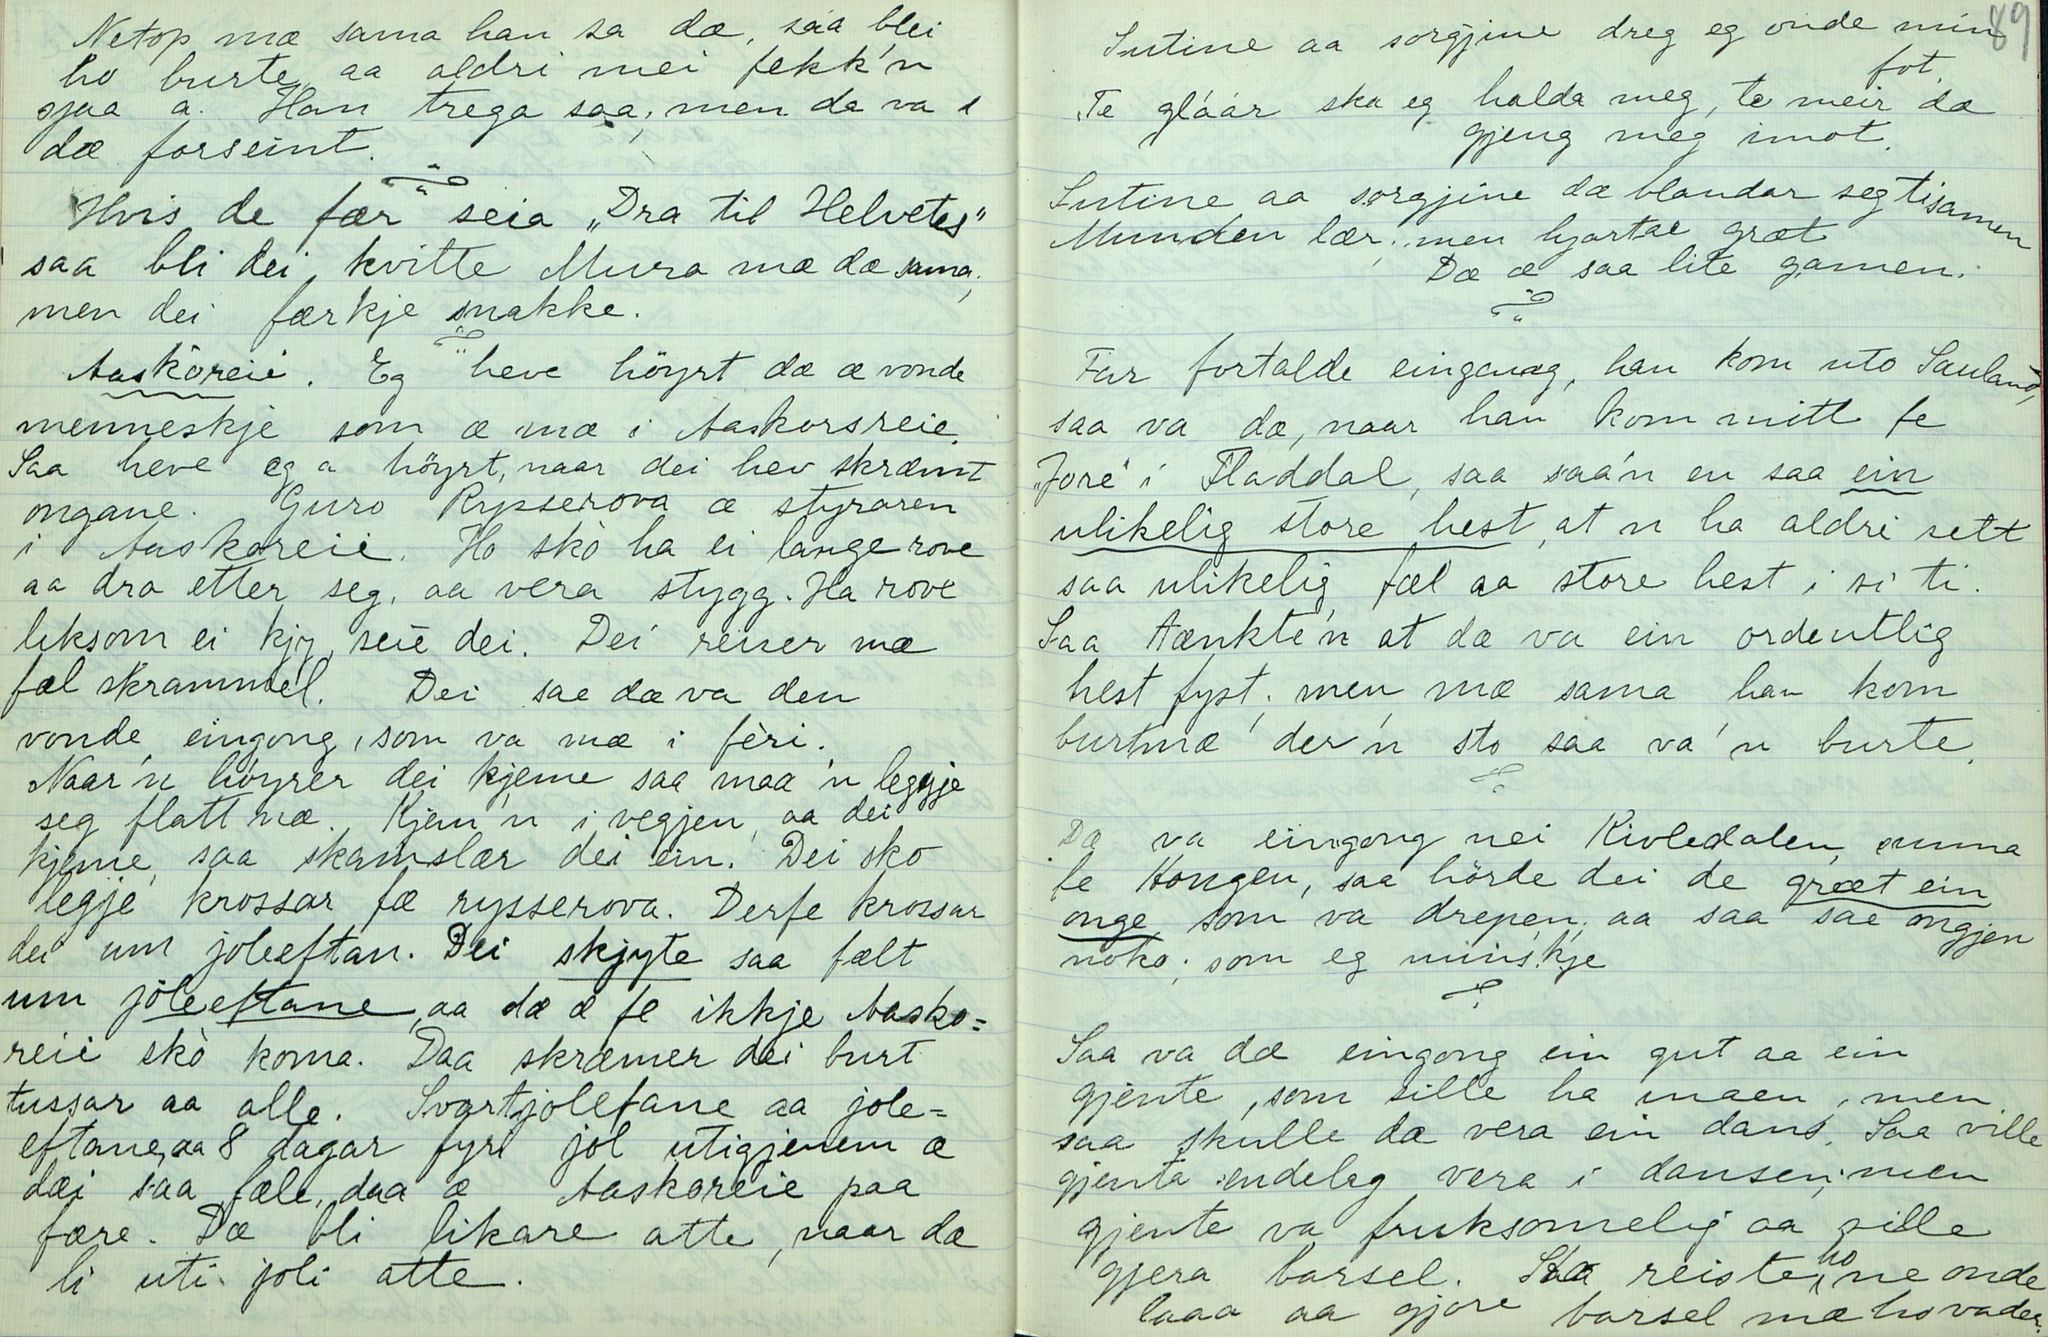 Netop mæ sama han sa dæ, saa blei
ho burte, aa aldri mei fekk'n
sjaa a. Han trega saa, men da va i
dæ forseint.
Hvis de fær seia „Dra til Helvetes"
saa bli dei kvitte Mura mæ dæ sama,
men dei færkje snakke.
Aaskòreiè. Eg heve höyrt dæ æ vonde
menneskje som æ mæ i Aaskorsreie.
Saa heve eg a höyrt, naar dei hev skræmt
ongane. Guro Rysserova æ styraren
i Aaskoreie. Ho skò ha ei lange rove
aa dra etter seg, aa vera stygg. Ha rove
liksom ei kjy, seie dei. Dei reiser mæ
fæl skrammel. Dei sae dæ va den
vonde eingong, som va mæ i fèri.
Naar'n höyrer dei kjeme saa maa'n leggje
seg flatt næ. Kjem'n i vegjen, aa dei
kjeme, saa skamslær dei ein. Dei sko
legje krossar fæ rysserova. Derfe krossar
dei um joleeftan. Dei skjyte saa fælt
um jòleeftane, aa dæ æ fe ikkje Aasko=
reiè skò koma. Daa skræmer dei burt
tussar aa alle. Svartjolefane aa jole=
eftane, aa 8 dagar fyri jol utigjenem æ
dæi saa fæle, daa æ Aaskoreie paa
fære. Dæ bli likare atte, naar dæ
li uti joli atte.
89
Sutine aa sorgjine dreg eg onde min
fot.
Te gláár ska eg halda meg, te meir dæ
gjeng meg imot.
Sutine aa sorgjine dæ blandar seg tisamen
Munden lær, men hjartae græt
Dæ æ saa lite gamen.
Far fortalde eingang, han kom uto Sauland,
saa va dæ, naar han kom mitt fe
„Jore" i Fladdal, saa saa'n en saa ein
ulikelig store hest, at'n ha aldri sett
saa ulikelig fæl aa store hest i si ti.
Saa tænkte'n at dæ va ein ordentlig
hest fyst, men mæ sama han kom
burtmæ der'n sto saa va'n burte.
Dæ va eingong nei Kivledalen, sunna
fe Kongen, saa hörde dei de græt ein
onge, som va drepen, aa saa sae ongjen
noko, som eg minskje
Saa va dæ eingong ein gut aa ein
gjente, som sille ha inaen, men
saa skulle dæ vera ein dans. Saa ville
gjenta endeleg vera i dansen, men
gjente va fruksomelig aa sille
gjera barsel. Saa reiste ho ne onde
laaa aa gjore barsel mæ ho va der.